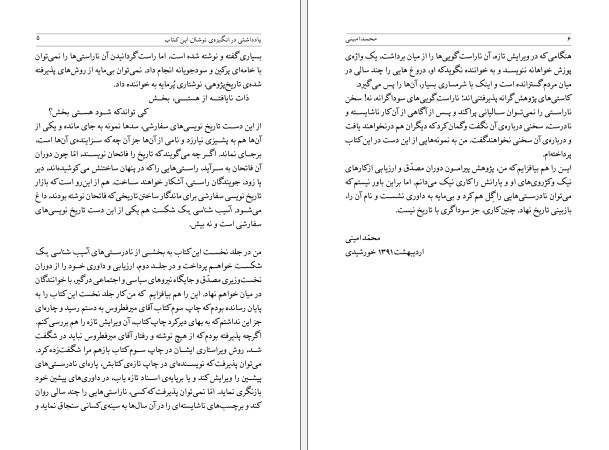 یادداشتی در انگیزه‌ی نوشتن این کتاب ۵
بسیاری گفته و نوشته شده است، اما راست‌گردانیدن آن ناراستی‌ها را نمی‌توان
با خامه‌ای پرکین و سودجویانه انجام داد. نمی‌توان بی‌مایه از روش‌های پذیرفته
شده‌ی تاریخ‌پژوهی، نوشتاری پُرمایه به خواننده داد.
ذات نایافته از هستی، بخش
کی تواند که شود هستی بخش؟
از این دست تاریخ نویسی‌های سفارشی، سدها نمونه به جای مانده و یکی از
آن‌ها هم به پشیزی نیارزد و نامی از آن‌ها جز آن چه که سزاینده‌ی آن‌هاست،
برجای نماند. اگر چه می‌گویند که تاریخ را فاتحان نویسند، امّا چون دوران
آن فاتحان به سرآید، راستی‌هایی را که در پنهان ساختنش می‌کوشیده‌اند، دیر
یا زود، جویندگان راستی، آشکار خواهند ساخت. هم از این‌رو است که بازار
تاریخ نویسی سفارشی برای ماندگار ساختن تاریخی که فاتحان نوشته بودند، داغ
می‌شود. آسیب شناسی یک شکست هم یکی از این دست تاریخ نویسی‌های
سفارشی است.
من در جلد نخست این کتاب به بخشی از نادرستی‌های آسیب شناسی یک
شکست خواهم پرداخت و در جلد دوم، ارزیابی و داوری خود را از دوران
نخست‌وزیری مصدّق و جایگاه نیروهای سیاسی و اجتماعی درگیر، با خوانندگان
در میان خواهم نهاد. این را هم بیافزایم که من کار جلد نخست این کتاب را به
پایان رسانده بودم که چاپ سوم کتاب آقای میرفطروس به دستم رسید و چاره‌ای
جز این نداشتم که به بهای دیرکرد چاپ کتاب، آن ویرایش تازه را هم بررسی کنم.
اگرچه پذیرفته بودم که از هیچ نوشته و رفتار آقای میرفطروس نباید در شگفت
شد، روش ویراستاری ایشان در چاپ سوم کتاب بازهم مرا شگفت‌زده کرد.
می‌توان پذیرفت که نویسنده‌ای در چاپ تازه‌ی کتابش، پاره‌ای نادرستی‌های
پیشین را ویرایش کند و یا برپایه‌ی اسناد تازه یاب، در داوری‌های پیشین خود
بازنگری نماید. امّا نمی‌توان پذیرفت که کسی، ناراستی‌هایی را چند سالی روان
کند و برچسب‌های ناشایسته‌ای را در آن سال‌ها به سینه‌ی کسانی سنجاق نماید و
۶ محمد امینی
هنگامی که در ویرایش تازه، آن ناراست‌گویی‌ها را از میان برداشت، یک واژه‌ی
پوزش خواهانه ننویسد و به خواننده نگوید که او، دروغ هایی را چند سالی در
میان مردم گسترانده است و اینک با شرمساری بسیار، آن‌ها را پس می‌گیرد.
کاستی‌های پژوهش‌گرانه پذیرفتنی‌اند؛ ناراست‌گویی‌های سوداگرانه، نه! سخن
ناراستی را نمی‌توان سالیانی پراکند و پس از آگاهی از آن کار ناشایسته و
نادرست، سخنی درباره‌ی آن نگفت و گمان کرد که دیگران هم درنخواهند یافت
و درباره‌ی آن سخنی نخواهند گفت. من به نمونه‌هایی از این دست در این کتاب
پرداخته‌ام.
این را هم بیافزایم که من، پژوهش پیرامون دوران مصدّق و ارزیابی از کارهای
نیک و کژروی‌های او و یارانش را کاری نیک می‌دانم. اما براین باور نیستم که
می‌توان نادرستی‌هایی را گِل هم کرد و بی‌مایه به داوری نشست و نام آن را،
بازبینی تاریخ نهاد. چنین کاری، جز سوداگری با تاریخ نیست.
محمّد امینی
اردیبهشت ۱۳۹۱ خورشیدی